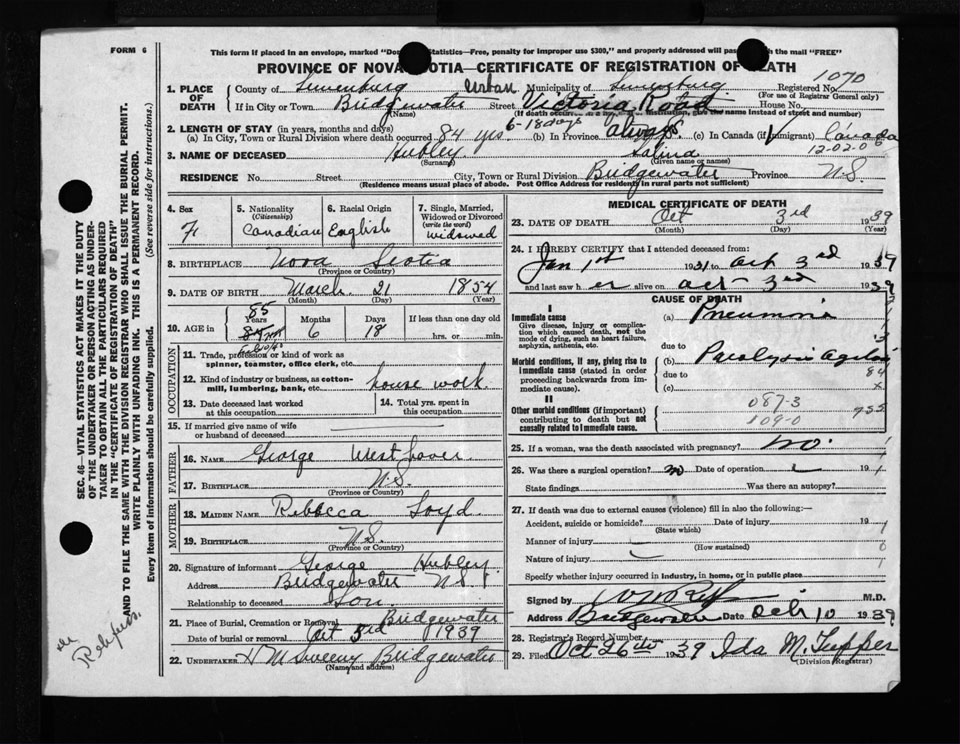 FORM 6
This form if placed in an envelope, marked "Dom Statistics—Free, penalty for improper use $300," and properly addressed will pass the mail "FREE"
PROVINCE OF NOVA SCOTIA—CERTIFICATE OF REGISTRATION OF DEATH
1070
1. PLACE OF DEATH
County of Lunenburg Urban Municipality of Lunenburg Registered No.
(For use of Registrar General only)
If in City or Town Bridgewater Street Victoria Road House No.
(Name) (If death occurred in a institution, give the name instead of street and number)
2. LENGTH OF STAY (in years, months and days)
(a) In City, Town or Rural Division where death occurred 84 yrs 6-18 days (b) In Province always (c) In Canada (if immigrant) Canada
12-02-0
3. NAME OF DECEASED Hubley Salina
(Surname) (Given name or names)
RESIDENCE No. Street City, Town or Rural Division Bridgewater Province N.S.
(Residence means usual place of abode. Post Office Address for residents in rural parts not sufficient)
4. Sex F
5. Nationality (Citizenship) Canadian
6. Racial Origin English
7. Single, Married, Widowed or Divorced (write the word) Widowed
8. BIRTHPLACE Nova Scotia
(Province or Country)
9. DATE OF BIRTH March 21 1854
(Month) (Day) (Year)
10. AGE in 85 Years Months 6 Days 18 If less than one day old hrs. or min.
OCCUPATION
11. Trade, profession or kind of work as spinner, teamster, office clerk, etc.
12. Kind of industry or business, as cotton-mill, lumbering, bank, etc. house work
13. Date deceased last worked at this occupation
14. Total yrs. spent in this occupation
15. If married give name of wife or husband of deceased
FATHER
16. NAME George Westhaver
17. BIRTHPLACE N.S.
(Province or Country)
MOTHER
18. MAIDEN NAME Rebbeca Loyd
19. BIRTHPLACE N.S.
(Province or Country)
20. Signature of informant George Hubley
Address Bridgewater N.S.
Relationship to deceased Son
21. Place of Burial, Cremation or Removal Bridgewater
Date of burial or removal Oct 5rd 1939
22. UNDERTAKER H M Sweeny Bridgewater
(Name and address)
MEDICAL CERTIFICATE OF DEATH
23. DATE OF DEATH Oct 3rd 1939
(Month) (Day) (Year)
24. I HEREBY CERTIFY that I attended deceased from:
Jan 1st 1931 to Oct 3rd 1939
and last saw h er alive on Oct 3rd 1939
CAUSE OF DEATH
I
Immediate cause
Give disease, injury or complication which caused death, not the mode of dying, such as heart failure, asphyxia, asthenia, etc.
(a) Pneumonia
due to
Morbid conditions, if any, giving rise to immediate cause (stated in order proceeding backwards from immediate cause).
(b) Paralysis Agitans
due to
(c)
84
x
II
Other morbid conditions (if important) contributing to death but not causally related to immediate cause.
087-3
109-0
755
25. If a woman, was the death associated with pregnancy? no.
26. Was there a surgical operation? no Date of operation 19
State findings Was there an autopsy?
27. If death was due to external causes (violence) fill in also the following:—
Accident, suicide or homicide? Date of injury 19
(State which)
Manner of injury
(How sustained)
Nature of injury
Specify whether injury occurred in industry, in home, or in public place
Signed by M.D.
Address Bridgewater Date Oct 10 1939
28. Registrar's Record Number
29. Filed Oct 26th 1939 Ida M. Tupper
(Division Registrar)
SEC. 46—VITAL STATISTICS ACT MAKES IT THE DUTY
OF THE UNDERTAKER OR PERSON ACTING AS UNDER-
TAKER TO OBTAIN ALL THE PARTICULARS REQUIRED
IN THE "CERTIFICATE OF REGISTRATION OF DEATH"
AND TO FILE THE SAME WITH THE DIVISION REGISTRAR WHO SHALL ISSUE THE BURIAL PERMIT.
WRITE PLAINLY WITH UNFADING INK. THIS IS A PERMANENT RECORD.
Every item of information should be carefully supplied. (See reverse side for instructions.)